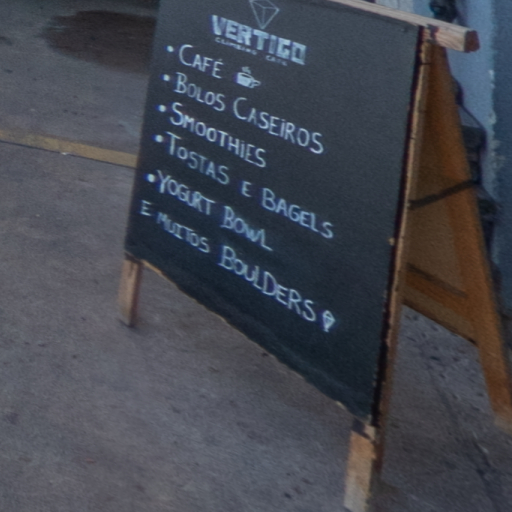 VERTIGO
CLIMBING CAFE
• CAFÉ
• BOLOS CASEIROS
• SMOOTHIES
• TOSTAS E BAGELS
• YOGURT BOWL
E MUITOS BOULDERS!